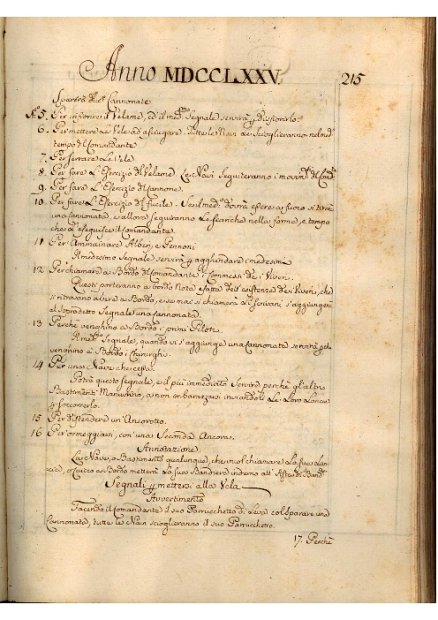 Anno MDCCLXXV. 215
Cannonate
N.º 5. Per il Velame, ed il med.º Segnale servirà
6. Per mettere le Vele ad asciugare. Tutte le Navi le Scioglieranno nel med.º
tempo del Comandante
7. Per serrare le Vele
8. Per fare l'Esercizio del Velame. Le Navi Seguiteranno i movim.ti del Com.te
9. Per fare l'Esercizio del Cannone.
10. Per fare l'Esercizio del fucile. Se il med.º dovrà essere a fuoco si tirerà
una Cannonata, e allora seguiranno le scariche nella forma, e tempo
che si eseguisce il Comandante.
11 Per Ammainare Alberi, e Pennoni
Il medesimo Segnale servirà p. i medesimi
12 Per chiamare a Bordo del Comandante i Commessi de' Viveri.
Questi porteranno a bordo Nota esatta dell'esistenza de' Viveri, che
si ritrovano a loro Bordo, e se mai si chiamerà gl'Scrivani s'aggiungerà
al Segnale una Cannonata.
13 Perche venghino a Bordo i primi Piloti
Il med.º Segnale, quando vi s'aggiunge una Cannonata servirà p. che
venghino a Bordo i Chirurghi.
14 Per una Nave
Potrà questo segnale, e il più immediato servire perche gl'altri
Bastimenti Manovrino, a non imbarazzarsi inviandoli le loro Lance
p. soccorrerlo.
15 Per distendere un'Ancorotto.
16 Per ormeggiarsi con una Seconda Ancora.
Annotazione
La Nave, o Bastimento qualunque, che vuol chiamare la sua Lancia,
o a Bordo metterà la sua Bandiera intorno all'Asta di Band.ª
Segnali p. mettersi alla Vela
Avvertimento
Facendo il Comandante il suo Parrucchetto di Leva col Sparare una
Cannonata, tutte le Navi scioglieranno il suo Parrucchetto.
17. Perchè